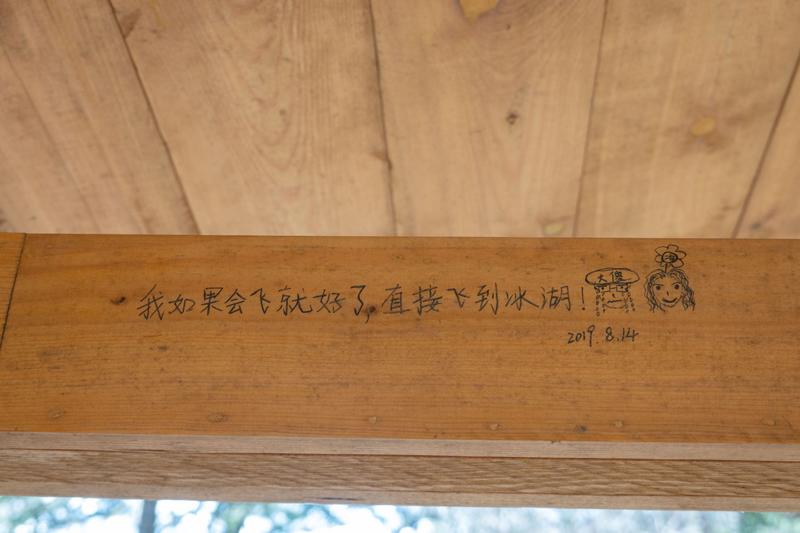 我如果会飞就好了,直接飞到冰湖!
大傻
2019.8.14